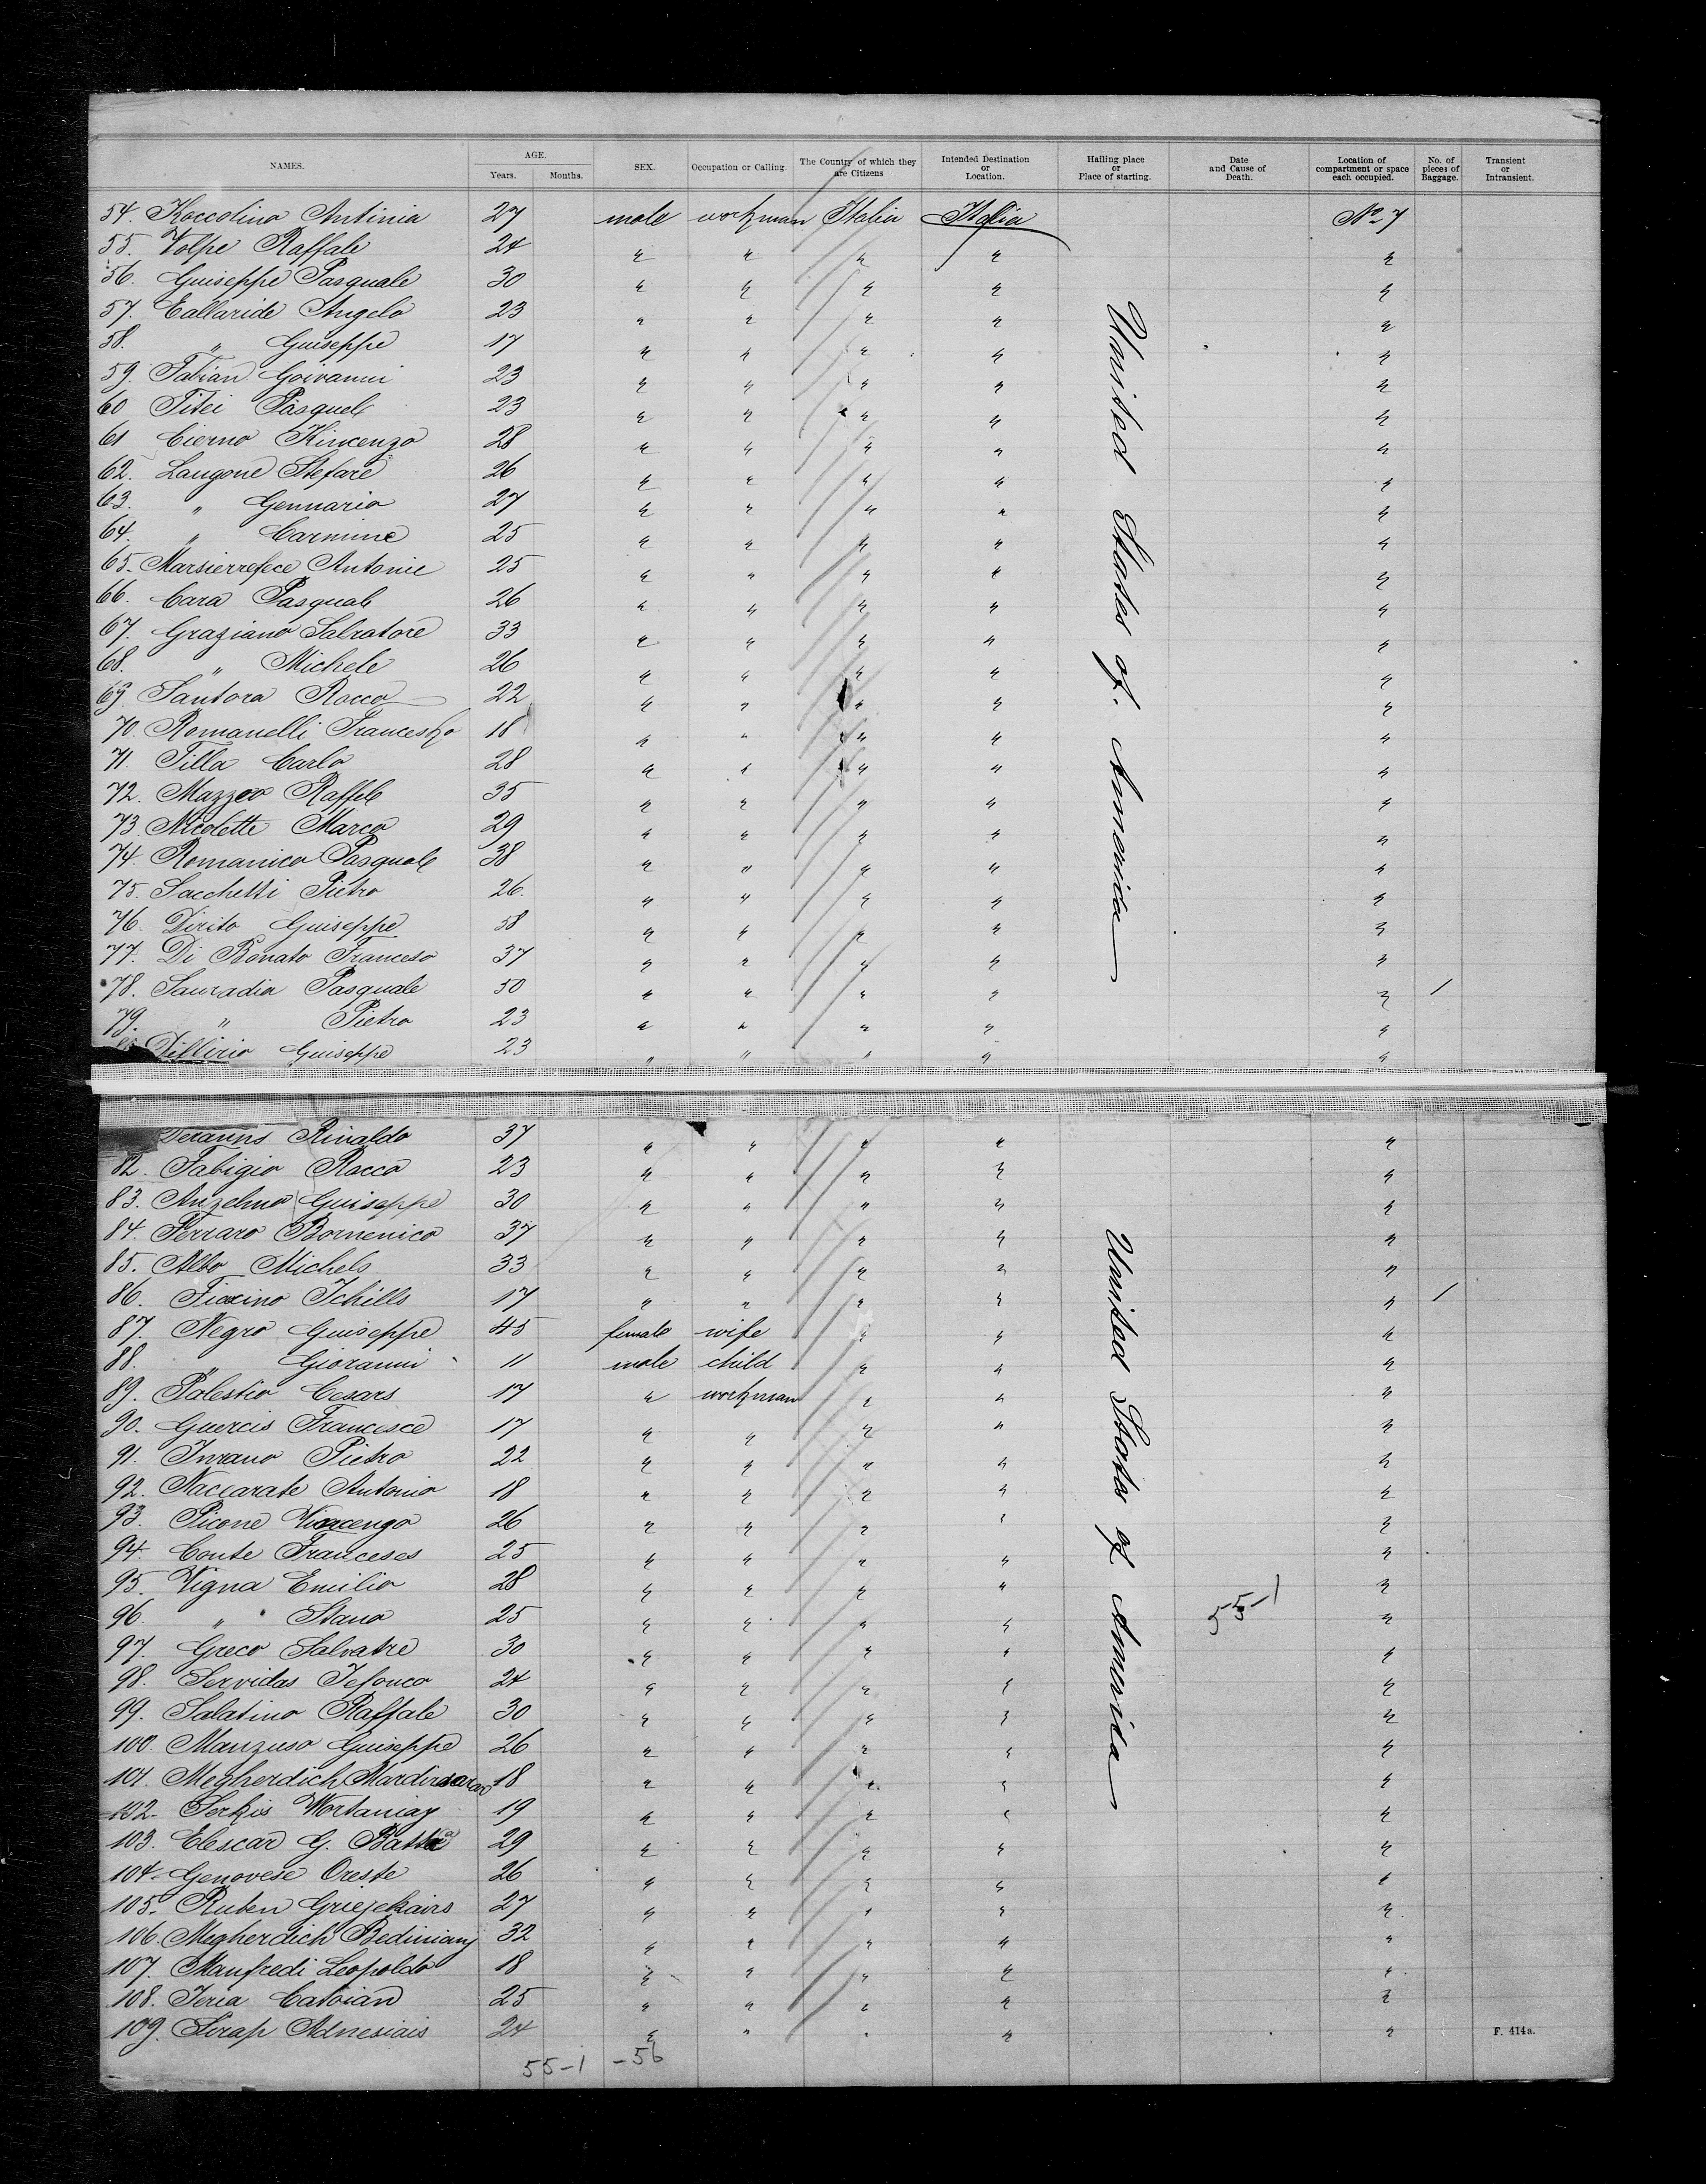 NAMES. AGE. Years. Months. SEX. Occupation or Calling. The Country of which they are Citizens Intended Destination or Location. Hailing place or Place of starting. Date and Cause of Death. Location of compartment or space each occupied. No. of pieces of Baggage. Transient or Intransient.
54. Roccolino Antinia 27 male workman Italia Italia No 7
55. Volpe Raffale 24 " " " " "
56. Guiseppe Pasquale 30 " " " " "
57. Callaride Angelo 23 " " " " "
58. " Guiseppe 17 " " " " "
59. Fabian Goivanni 23 " " " " "
60 Titei Pasquele 23 " " " " "
61 Cierno Kincenzo 28 " " " " "
62. Langone Stefare 26 " " " " "
63. " Gennario 27 " " " " "
64. " Carmine 25 " " " " "
65. Antonie 25 " " " " "
66. Cara Pasquale 26 " " " " "
67. Graziano Salvatore 33 " " " " "
68. " Michele 26 " " " " "
69. Santora Rocco 22 " " " " "
70. Romanelli Francesko 18 " " " " "
71. Tilla Carlo 28 " " " " "
72. Mazzeo Raffele 35 " " " " "
73. Nicolette Marco 29 " " " " "
74. Romanico Pasquale 38 " " " " "
75. Sacchetti Pietro 26. " " " " "
76. Dirito Guiseppe 58 " " " " "
77. Di Bonato Franceso 37 " " " " "
78. Sauradia Pasquale 50 " " " " " /
79. " Pietro 23 " " " " "
Dillirio Guiseppe 23 " " " " "
United States of. America
Rinaldo 37 " " " " "
82. Fabigio Rocco 23 " " " " "
83. Anzelmo Guiseppe 30 " " " " "
84. Ferraro Bornenico 37 " " " " "
85. Albo Michels 33 " " " " "
86. Fiorino Ichills 17 " " " " " /
87. Negro Guiseppe 45 female wife " " "
88. " Giovanni 11 male child " " "
89. Palestio Cesars 17 " workman " " "
90. Guercis Francesce 17 " " " " "
91. Pietro 22 " " " " "
92. Naccarate Antonio 18 " " " " "
93. Picone 26 " " " " "
94. Conte Franceses 25 " " " " "
95. Vigna Emilio 28 " " " " "
96. " Stano 25 " " " " "
97. Greco Salvatre 30 " " " " "
98. Servidas 24 " " " " "
99. Salatino Raffale 30 " " " " "
100. Manzuso Guiseppe 26 " " " " "
101. Megherdich 18 " " " " "
102. Serkis Wortaniay 19 " " " " "
103. Elescar G. Batta 29 " " " " "
104. Genovese Oreste 26 " " " " "
105. Ruben 27 " " " " "
106. Megherdich Bediniany 32 " " " " "
107. Manfredi Leopoldo 18 " " " " "
108. Jeria Catoian 25 " " " " "
109. Sirap Adnesiais 24 " " " " "
United States of America
55-1
F. 414a.
55-1 -56